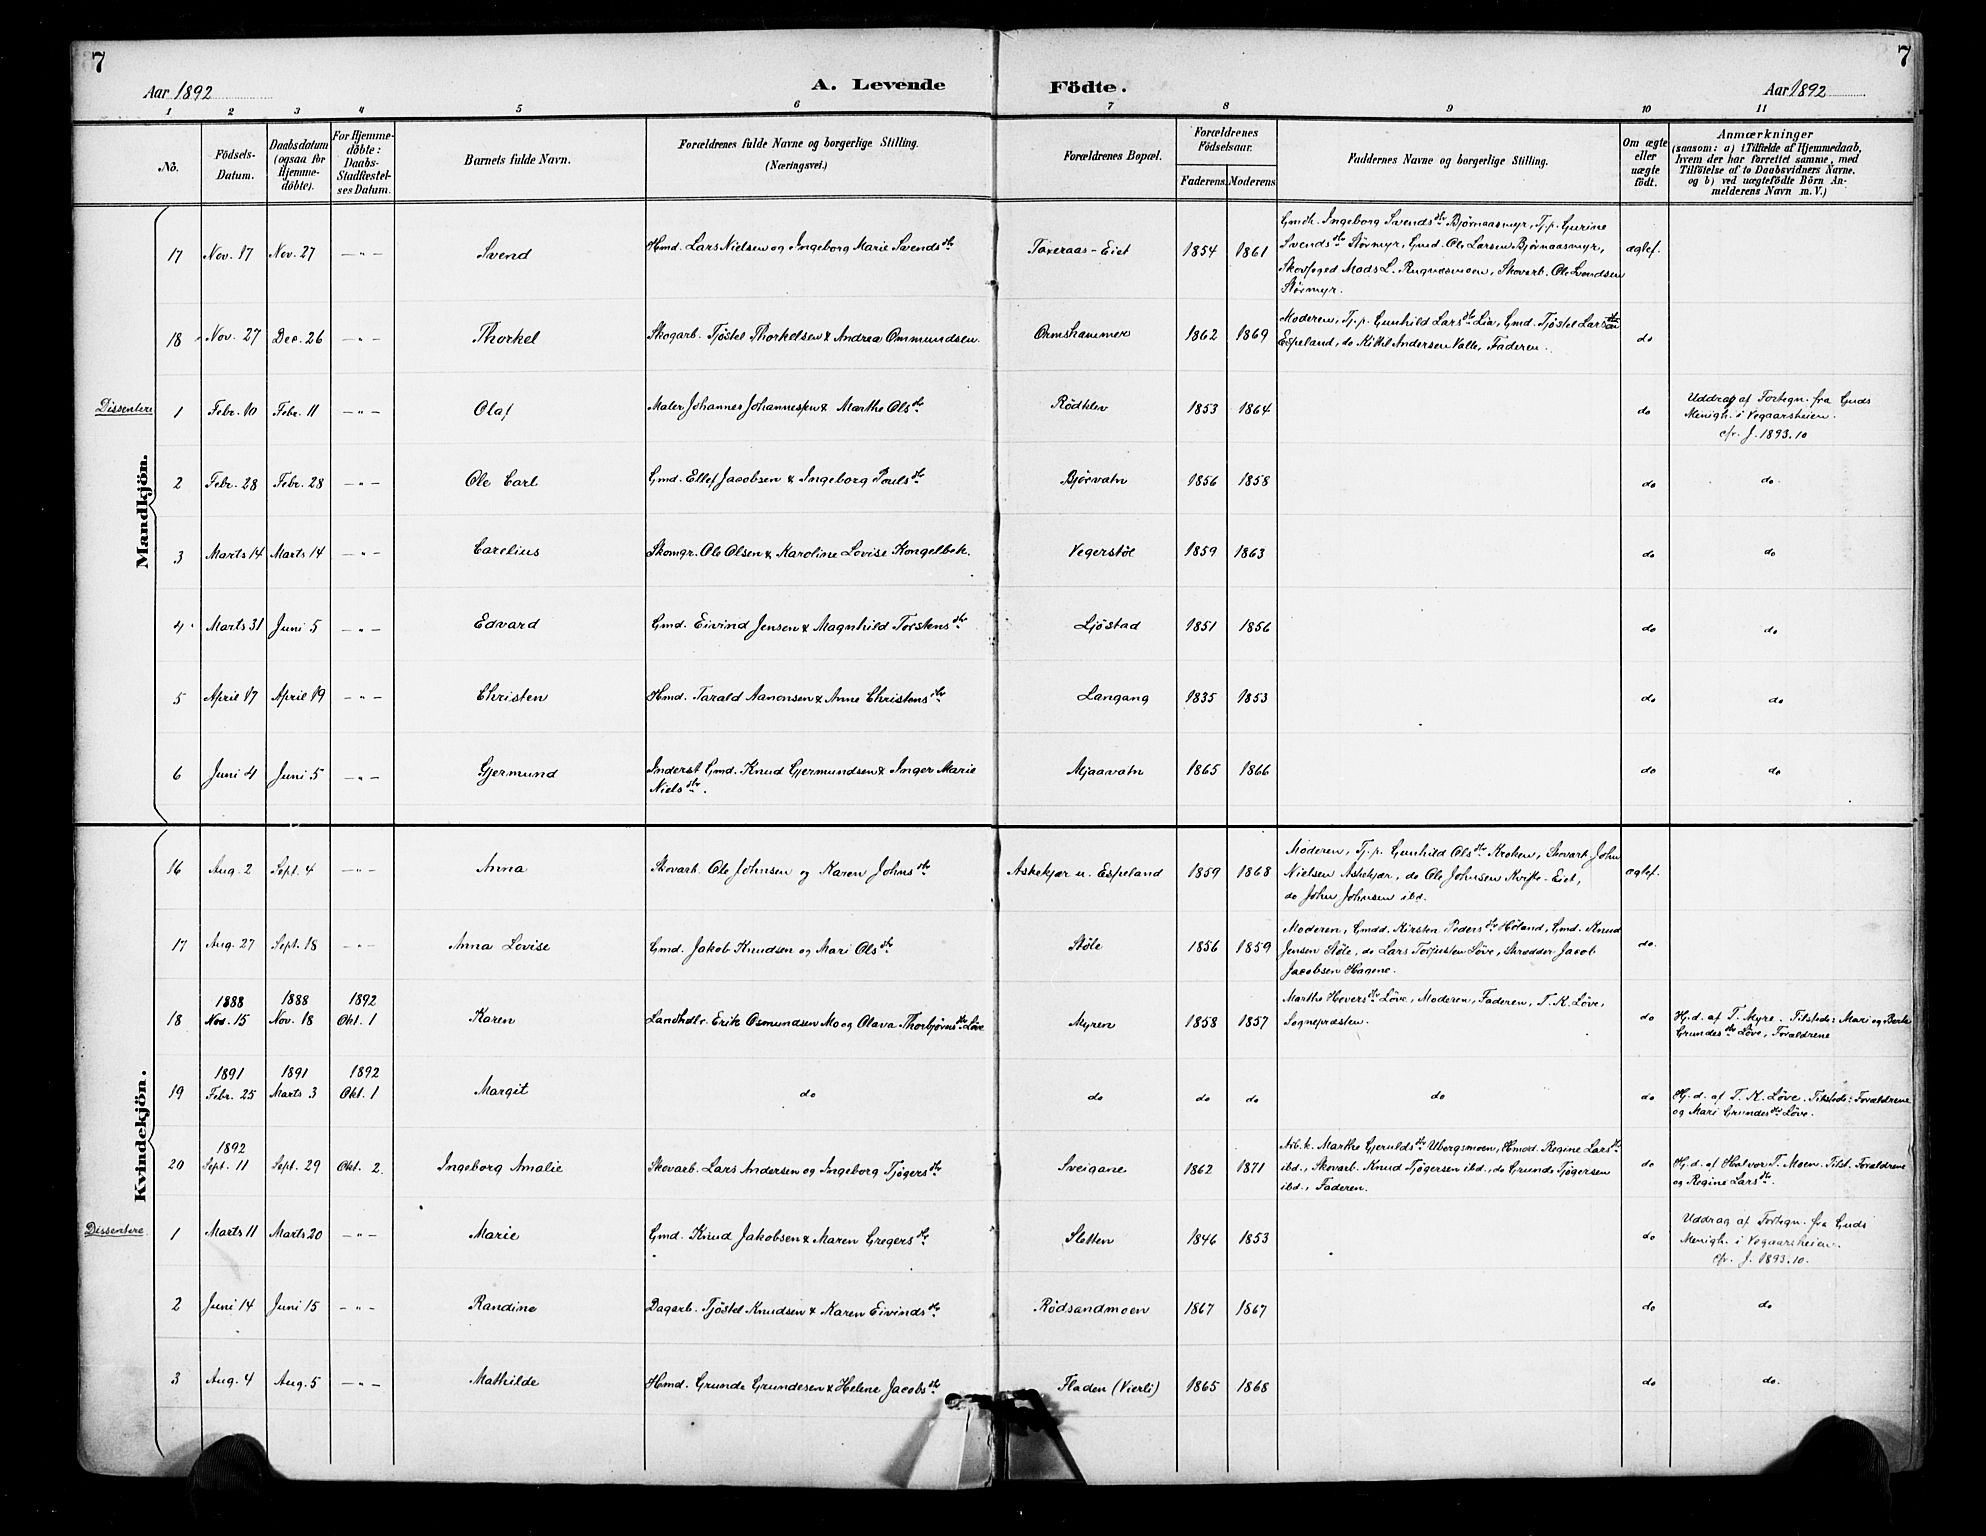 7
7
Aar 1892
A. Levende
Födte.
Aar 1892
1 2 3 4 5 6 7 8 9 10 11
No.
Födsels-
Datum.
Daabsdatum
(ogsaa for
Hjemme-
döbte).
For Hjemme-
döbte:
Daabs-
Stadfæstel-
ses Datum.
Barnets fulde Navn.
Forældrenes fulde Navne og borgerlige Stilling.
(Næringsvei.)
Forældrenes Bopæl.
Forældrenes
Födselsaar.
Faderens. Moderens
Faddernes Navne og borgerlige Stilling.
Om ægte
eller
uægte
födt.
Anmærkninger
(saasom: a) i Tilfælde af Hjemmedaab,
hvem der har forrettet samme, med
Tilföielse af to Daabsvidners Navne,
og b) ved uægtefödte Börn An-
melderens Navn m. V.)
Mandkjön.
17 Nov. 17 Nov. 27 — " — Svend Hmd. Lars Nielsen og Ingeborg Marie Svends dtr Taxeraas-Eiet 1854 1861 Gmdk. Ingeborg Svends dtr Bjørnaasmyr, Tj. p. Gurine
Svends dtr Størmyr, Gmd. Ole Larsen Bjørnaasmyr,
Skovfoged Mads L. Rugnæsmoen, Skovarb. Ole Svendsen
Størmyr.
ægtef.
18 Nov. 27 Dec. 26 — " — Thorkel Skogarb. Tjöstel Thorkelsen & Andrea Ommundsen. Ormshammer 1862 1869 Moderen, Tj. p. Gunhild Lars dtr Lia, Gmd. Tjøstel Larsen
Espeland, do Kittil Andersen Valle, Faderen.
do
Dissentere 1 Febr. 10 Febr. 11 — " — Olaf Maler Johannes Johannessen & Marthe Ols dtr Rödklev 1853 1864 do Uddrag af Fortegn. fra Guds
Menigh. i Vegaarsheien.
cfr. J. 1893.10
2 Febr. 28 Febr. 28 — " — Ole Carl Gmd. Ellef Jacobsen & Ingeborg Pouls dtr Bjørvatn 1856 1858 do do.
3 Marts 14 Marts 14 — " — Carelius Skomgr. Ole Olsen & Karoline Lovise Kongelbek. Vegerstöl 1859 1863 do do
4 Marts 31 Juni 5 — " — Edvard Gmd. Eivind Jensen & Magnhild Torstens dtr Ljöstad 1851 1856 do do
5 April 17 April 19 — " — Christen Hmd. Tarald Aanonsen & Anne Christens dtr Langang 1835 1853 do do
6 Juni 4 Juni 5 — " — Gjermund Inderst Gmd. Knud Gjermundsen & Inger Marie
Niels dtr.
Mjaavatn 1865 1866 do do
Kvindekjön.
16 Aug. 2 Sept. 4 — " — Anna Skovarb. Ole Johnsen og Karen Johns dtr Askekjær u. Espeland 1859 1868 Moderen, Tj. p. Gunhild Ols dtr Kroken, Skovarb. John
Nielsen Askekjær, do Ole Johnsen Kvifte-Eiet,
do John Johnsen ibd.
ægtef.
17 Aug. 27 Sept. 18 — " — Anna Lovise Gmd. Jakob Knudsen og Mari Ols dtr Støle 1856 1859 Moderen, Gmdd. Kirsten Peders dtr Høland, Gmd. Knud
Jensen Støle, do Lars Torjusten Löve, Skrædder Jacob
Jacobsen Hagene.
do.
18 1888 Nov. 15 1888 Nov. 18 1892 Okt. 1 Karen Landhdlr. Erik Osmundsen Mo og Olava Thorbjørns dtr Löve Myren 1858 1857 Marthe Hovers dtr Löve, Moderen, Faderen, T. K. Löve,
Sognepræsten.
do Hj. d. af T. Myre. Tilstede: Mari og Berte
Grundes dtr Löve, Forældrene
19 1891 Febr. 25 1891 Marts 3 1892 Okt. 1 Margit do do do do do do Hj. d. af T. K. Löve. Tilstede: Forældrene
og Mari Grundes dtr Löve.
20 1892 Sept. 11 Sept. 29 Okt. 2. Ingeborg Amalie Skovarb. Lars Andersen og Ingeborg Tjøgers dtr Sveigane 1862 1871 Nb. k. Marthe Gjerulds dtr Ubergsmoen, Hmod. Regine Lars dtr
ibd., Skovarb. Knud Tjøgersen ibd., do Grunde Tjøgersen
ibd., Faderen.
do Hj. d. af Halvor T. Moen. Tilst. Forældrene
og Regine Lars dtr.
Dissentere 1 Marts 11 Marts 20 — " — Marie Gmd. Knud Jakobsen & Maren Gregers dtr Sletten 1846 1853 do Uddrag af Fortegn. fra Guds
Menigh. i Vegaarsheien.
cfr. J. 1893.10.
2 Juni 14 Juni 15 — " — Randine Dagarb. Tjöstel Knudsen & Karen Eivinds dtr Rödsandmoen 1867 1867 do do
3 Aug. 4 Aug. 5 — " — Mathilde Hmd. Grunde Grundesen & Helene Jacobs dtr Fladen (Vierli) 1865 1868 do do.